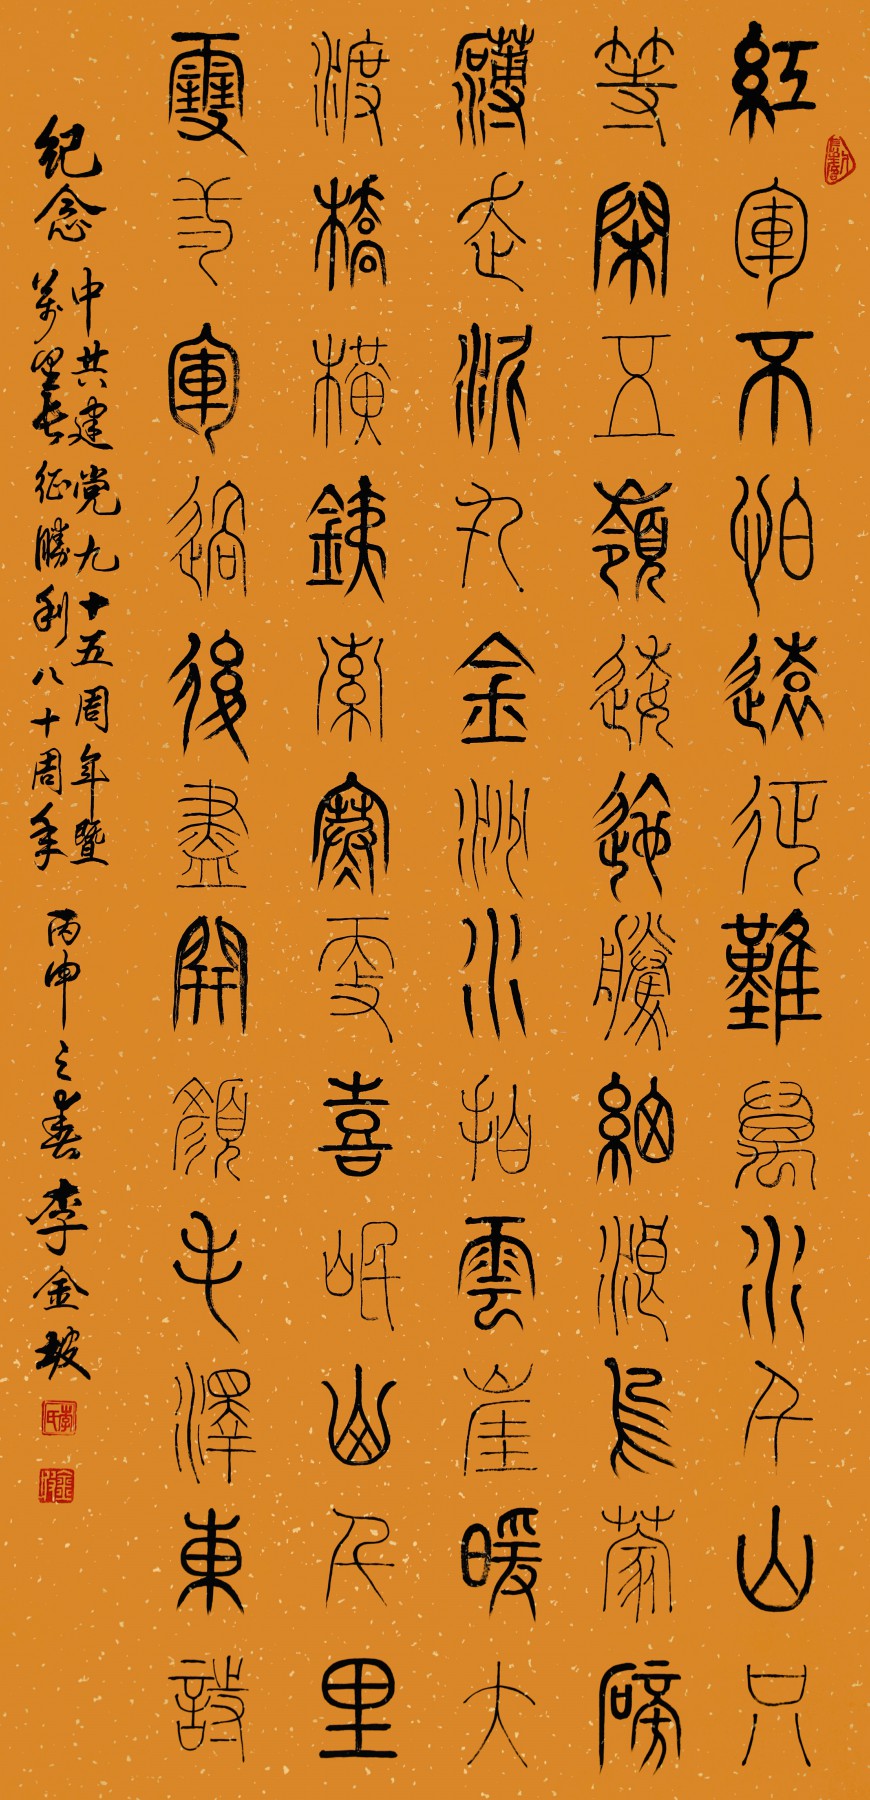 紅軍不怕遠征難萬水千山只
等閑五嶺逶迤騰細浪烏蒙磅
礴走泥丸金沙水拍雲崖暖大
渡橋橫鐵索寒更喜岷山千里
雪三軍過後盡開顏毛澤東詩
纪念
中共建党九十五周年暨
萬里长征勝利八十周年
丙申之春李金坡